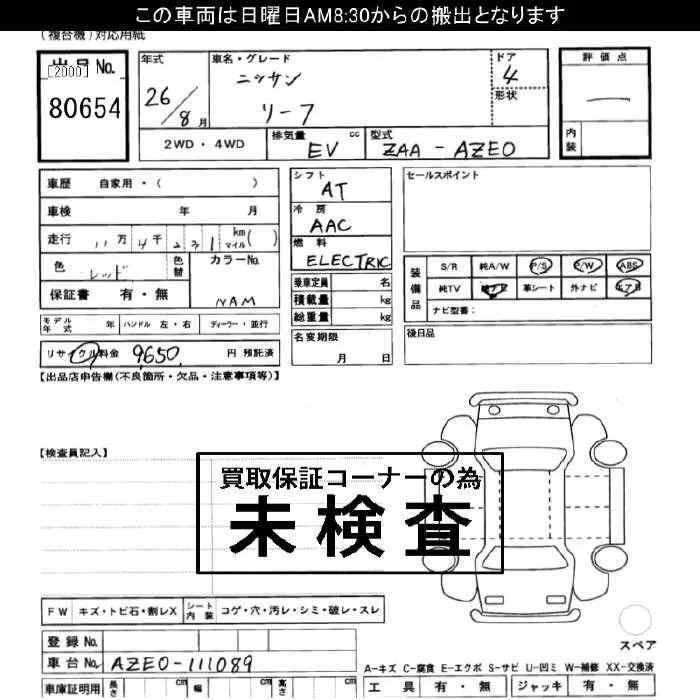 この車両は日曜日AM8:30からの搬出となります
(複合機)対応用紙
出品No.
[2000]
80654
年式 車名・グレード ドア 評価点
ニッサン 4
26/8月 リーフ 形状 —
2WD・4WD 排気量 EV cc 型式 ZAA-AZE0 内装
車歴 自家用・( )
車検 年 月
走行 11万4千231km(マイル)
色 レッド 色替 カラーNo.
NAM
保証書 有・無
モデル年式 年 ハンドル 左・右 ディーラー・並行
リサイクル料金 9,650 円 預託済
シフト AT
冷房 AAC
燃料 ELECTRIC
乗車定員 名
積載量 kg
総重量 kg
名変期限
月 日
セールスポイント
装備品 S/R 純A/W P/S P/W ABS
純TV 純ナビ 革シート 外ナビ エアB
ナビ型番:
後日品
【出品店申告欄(不良箇所・欠品・注意事項等)】
【検査員記入】
買取保証コーナーの為
未検査
FW キズ・トビ石・割レX シート内装 コゲ・穴・汚レ・シミ・破レ・スレ
登録No.
車台No. AZE0-111089
車庫証明用 長さ cm 幅 cm 高さ cm
スペア
A-キズ C-腐食 E-エクボ S-サビ U-凹ミ W-補修 XX-交換済
工具 有・無 ジャッキ 有・無